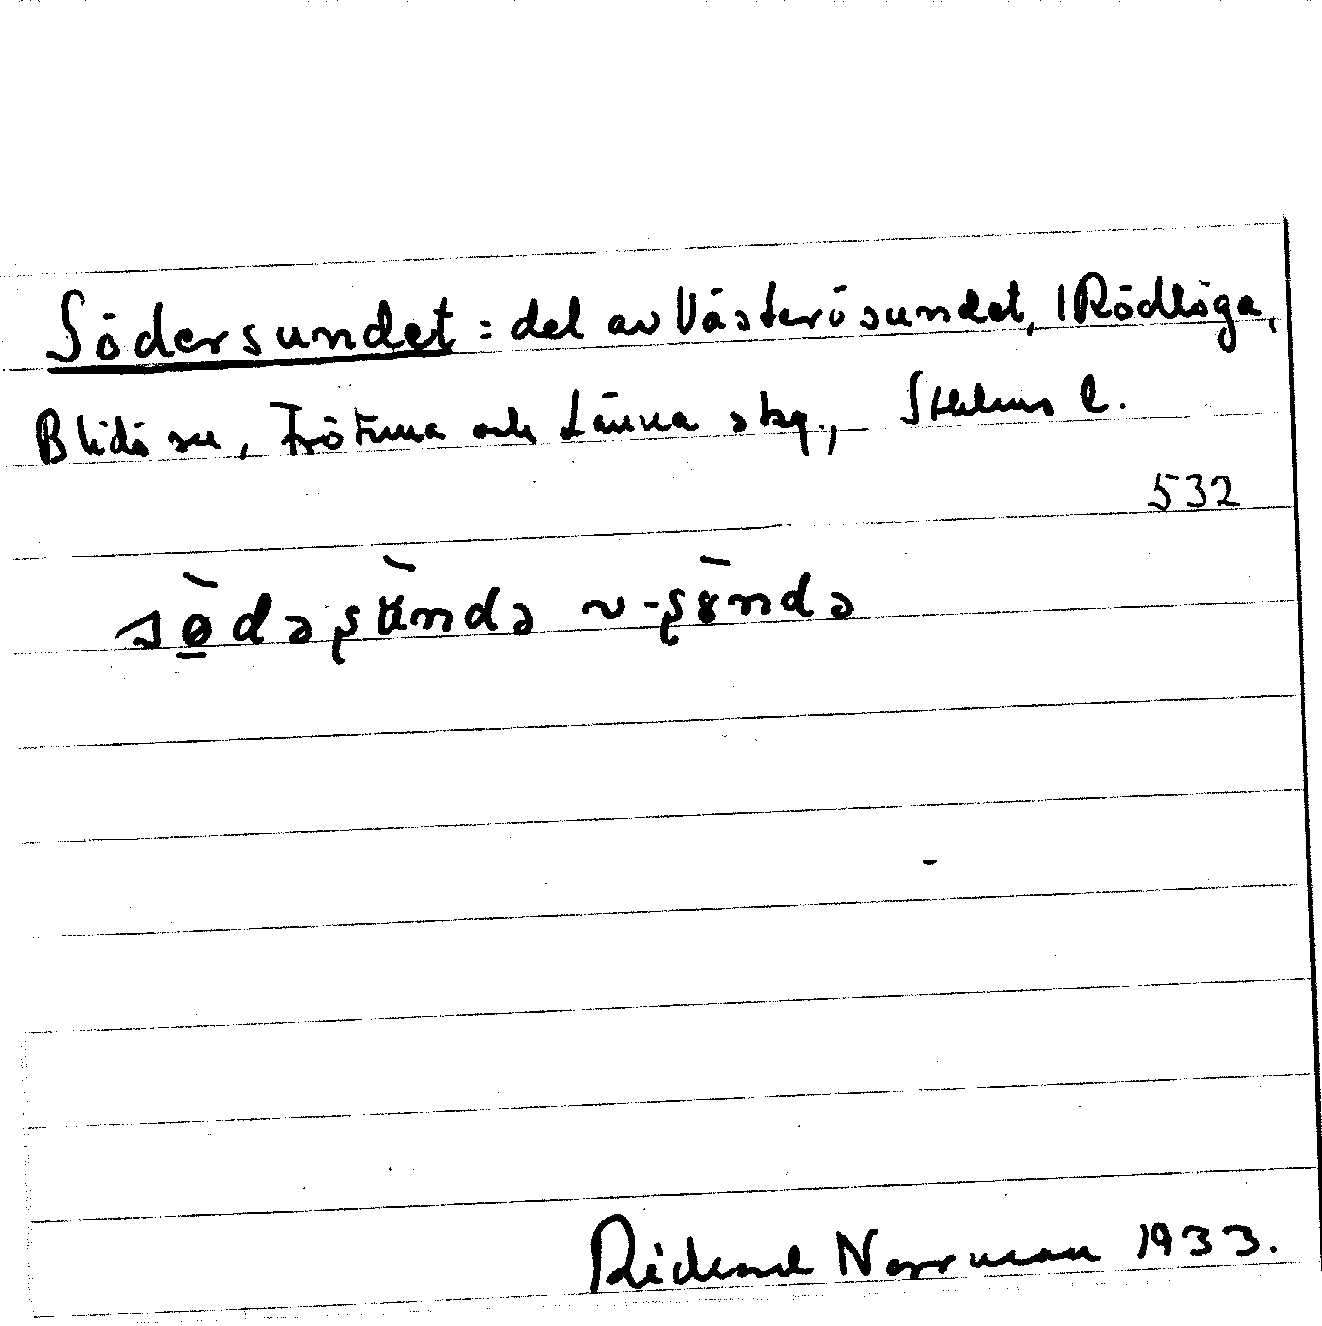 Södersundet = del av Västerösundet, i Rödlöga,
Blidö sn, Frötuna och Länna skg., Sthlms l.
532
sø̀dəʂùndə ~ -ʂɤ̀ndə
Rickard Norrman 1933.